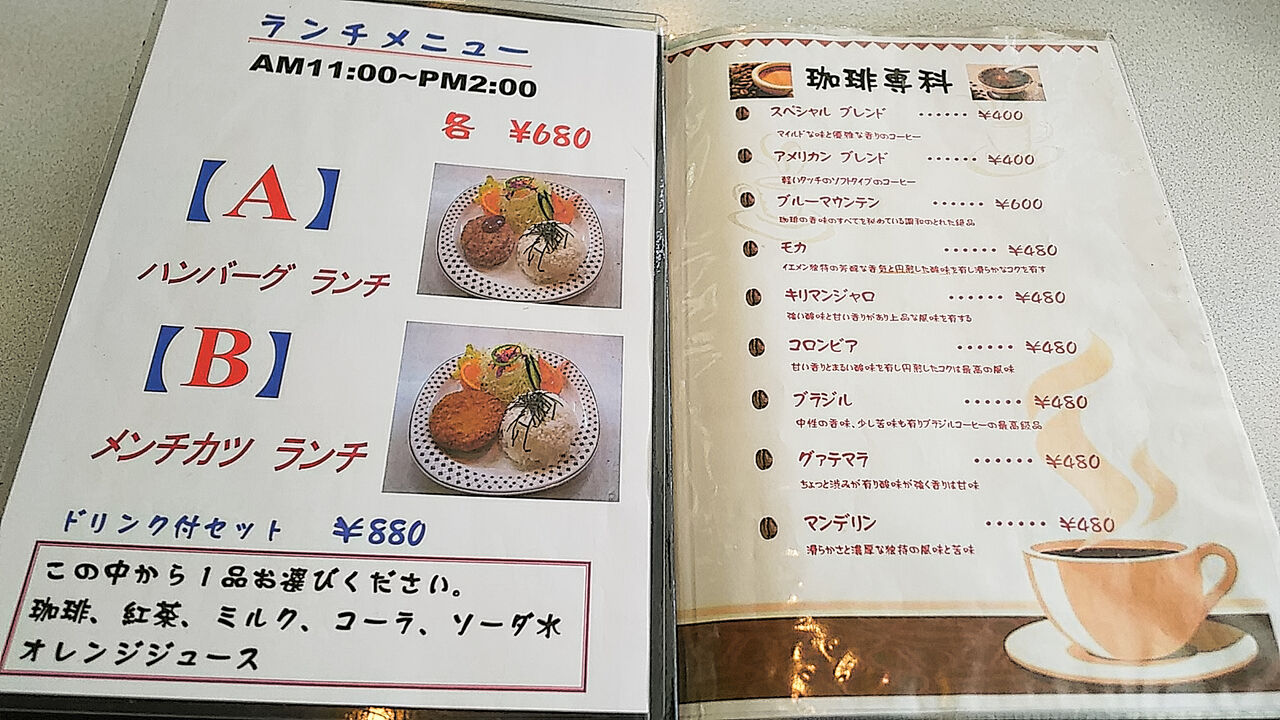 ランチメニュー
AM11:00~PM2:00
各 ¥680
【A】
ハンバーグ ランチ
【B】
メンチカツ ランチ
ドリンク付セット ¥880
この中から1品お選びください。
珈琲、紅茶、ミルク、コーラ、ソーダ水
オレンジジュース
珈琲専科
スペシャル ブレンド ‥‥‥ ¥400
マイルドな味と優雅な香りのコーヒー
アメリカン ブレンド ‥‥‥ ¥400
軽いタッチのソフトタイプのコーヒー
ブルーマウンテン ‥‥‥ ¥600
珈琲の香味のすべてを秘めている調和のとれた絶品
モカ ‥‥‥ ¥480
イエメン独特の芳醇な香気と円熟した酸味を有し滑らかなコクを有す
キリマンジャロ ‥‥‥ ¥480
強い酸味と甘い香りがあり上品な風味を有する
コロンビア ‥‥‥ ¥480
甘い香りとまるい酸味を有し円熟したコクは最高の風味
ブラジル ‥‥‥ ¥480
中性の香味、少し苦味も有りブラジルコーヒーの最高級品
グァテマラ ‥‥‥ ¥480
ちょっと渋みが有り酸味が強く香りは甘味
マンデリン ‥‥‥ ¥480
滑らかさと濃厚な独特の風味と苦味